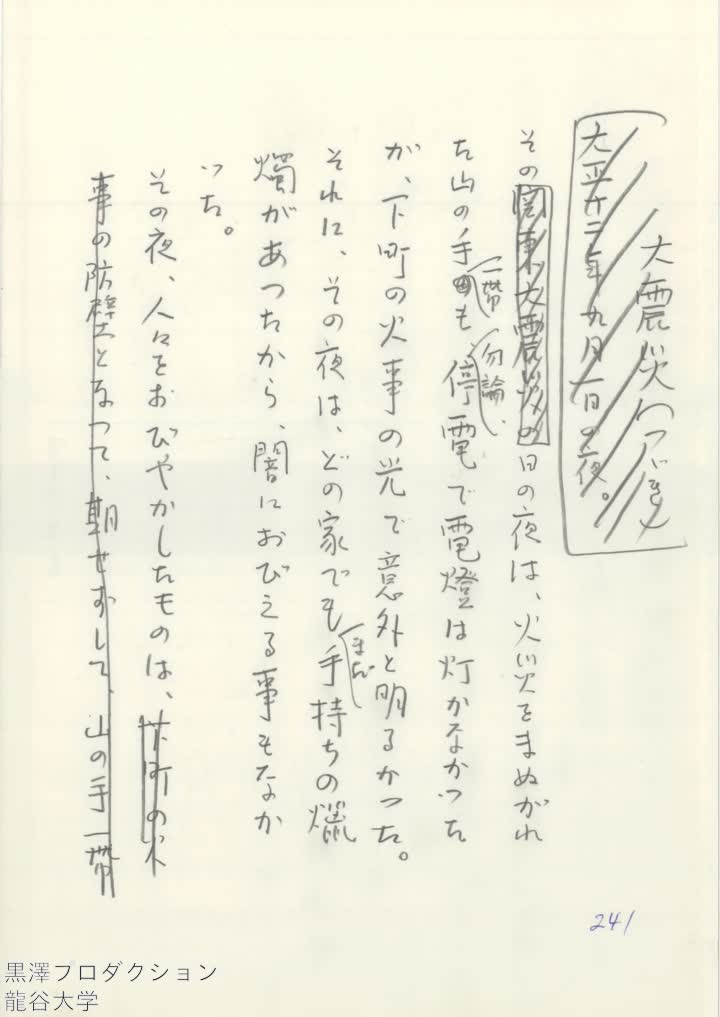 大震災のつゞき
大正十二年九月一日の夜。
その関東大震災の日の夜は、火災をまぬがれ
た山の手一帯も勿論、停電で電燈は灯かなかつた
が、下町の火事の光で意外と明るかつた。
それに、その夜は、どの家でもまだ手持ちの蠟
燭があつたから、闇におびえる事もなか
いた。
その夜、人々をおびやかしたものは、下町の火
事の防壁となつて、期せずして、山の手一帯
241
黒澤プロダクション
龍谷大学